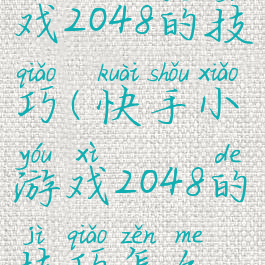 戏2048的技
qiǎo kuài shǒu xiǎo
巧(快手小
yóu xì de
游戏2048的
jì qiǎo zěn me
技巧怎么